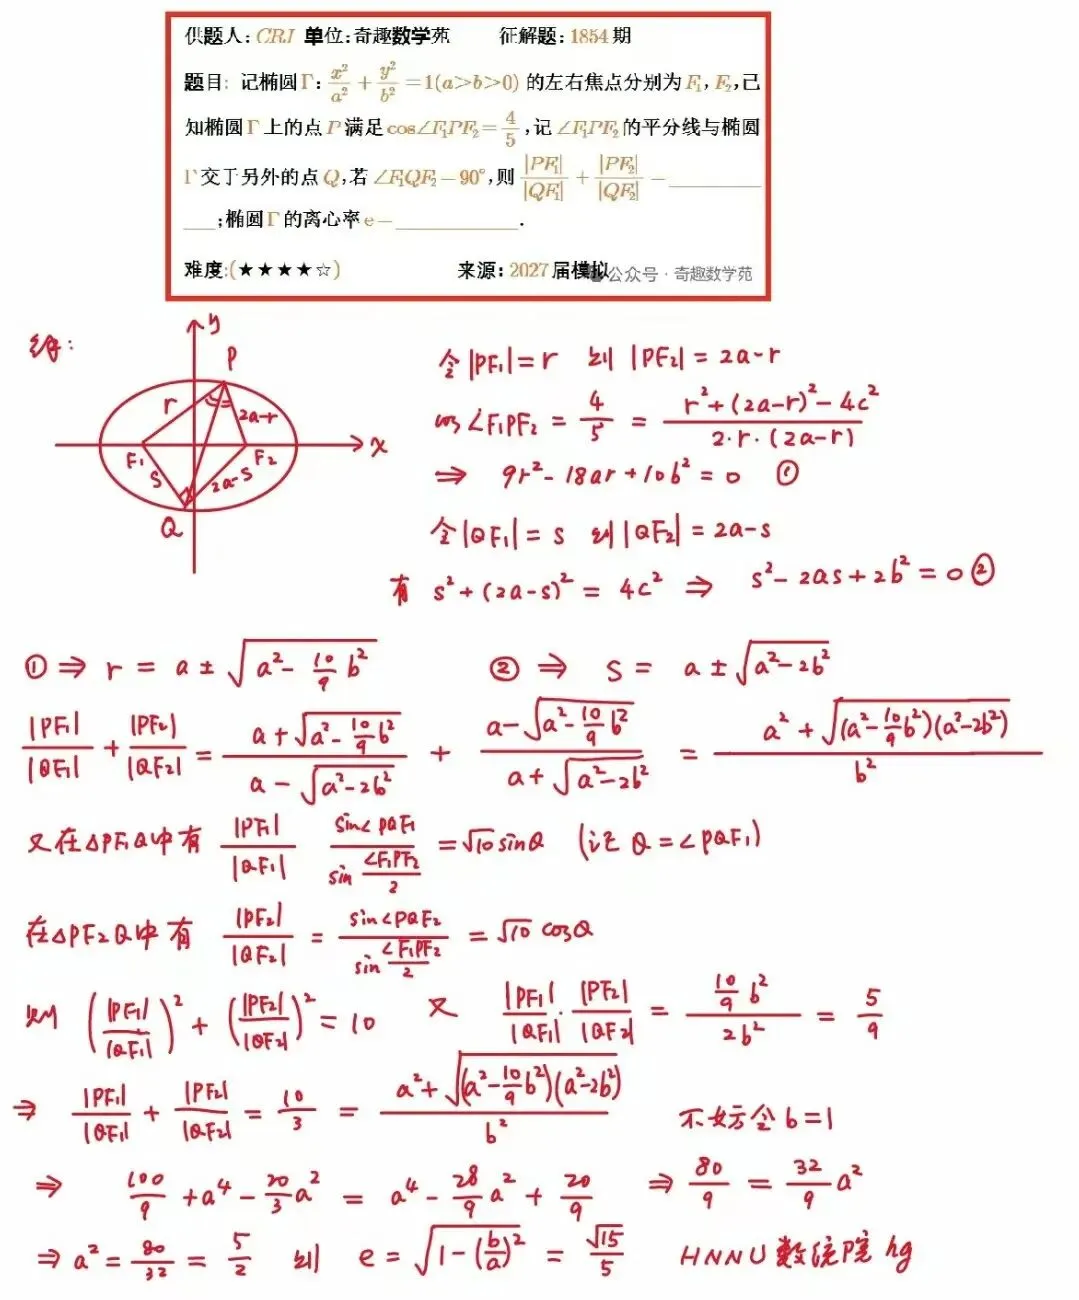 供题人: CRJ 单位: 奇趣数学苑 征解题: 1854 期
题目: 记椭圆 Γ: x²/a² + y²/b² = 1(a>b>0) 的左右焦点分别为 F₁, F₂, 已
知椭圆 Γ 上的点 P 满足 cos∠F₁PF₂ = 4/5, 记 ∠F₁PF₂ 的平分线与椭圆
Γ 交于另外的点 Q, 若 ∠F₁QF₂ = 90°, 则 |PF₁|/|QF₁| + |PF₂|/|QF₂| = ________
___; 椭圆 Γ 的离心率 e = ___________.
难度:(★★★★☆) 来源: 2027 届模拟
公众号 · 奇趣数学苑
解:
y
P
r
2a-r
F₁
F₂
x
S
2a-s
Q
令 |PF₁| = r 则 |PF₂| = 2a-r
cos∠F₁PF₂ = 4/5 = (r²+(2a-r)²-4c²)/(2·r·(2a-r))
⇒ 9r²-18ar+10b² = 0 ①
令 |QF₁| = s 则 |QF₂| = 2a-s
有 s²+(2a-s)² = 4c² ⇒ s²-2as+2b² = 0 ②
① ⇒ r = a ± √(a²-10/9 b²) ② ⇒ S = a ± √(a²-2b²)
|PF₁|/|QF₁| + |PF₂|/|QF₂| = (a+√(a²-10/9 b²))/(a-√(a²-2b²)) + (a-√(a²-10/9 b²))/(a+√(a²-2b²)) = (a²+√((a²-10/9 b²)(a²-2b²)))/b²
又在△PF₁Q中有 |PF₁|/|QF₁| sin∠PQF₁/sin(∠F₁PF₂/2) = √10 sinθ (记 θ = ∠PQF₁)
在△PF₂Q中有 |PF₂|/|QF₂| = sin∠PQF₂/sin(∠F₁PF₂/2) = √10 cosθ
则 (|PF₁|/|QF₁|)² + (|PF₂|/|QF₂|)² = 10 又 |PF₁|/|QF₁| · |PF₂|/|QF₂| = (10/9 b²)/(2b²) = 5/9
⇒ |PF₁|/|QF₁| + |PF₂|/|QF₂| = 10/3 = (a²+√((a²-10/9 b²)(a²-2b²)))/b² 不妨令 b=1
⇒ 100/9 + a⁴ - 20/3 a² = a⁴ - 28/9 a² + 20/9 ⇒ 80/9 = 32/9 a²
⇒ a² = 80/32 = 5/2 则 e = √(1-(b/a)²) = √15/5 HNNU 数统院 hg